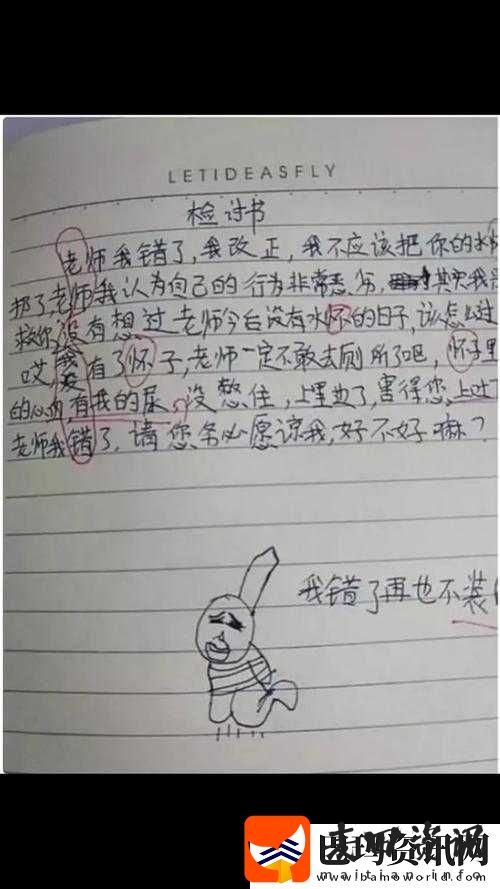 LETIDEASFLY
检讨书
老师我错了,我改正,我不应该把你的水
扔了,老师我认为自己的行为非常恶劣,其实我
救你,没有想过老师今后没有水怀的日子,该怎么过
哎,我有了怀子,老师一定不敢去厕所了吧,怀子里
的心内有我的尿,没憋住,上里边了,害得您上吐
老师我错了,请您务必愿谅我,好不好嘛?
我错了再也不装
资讯网
www.ibamaworld.com